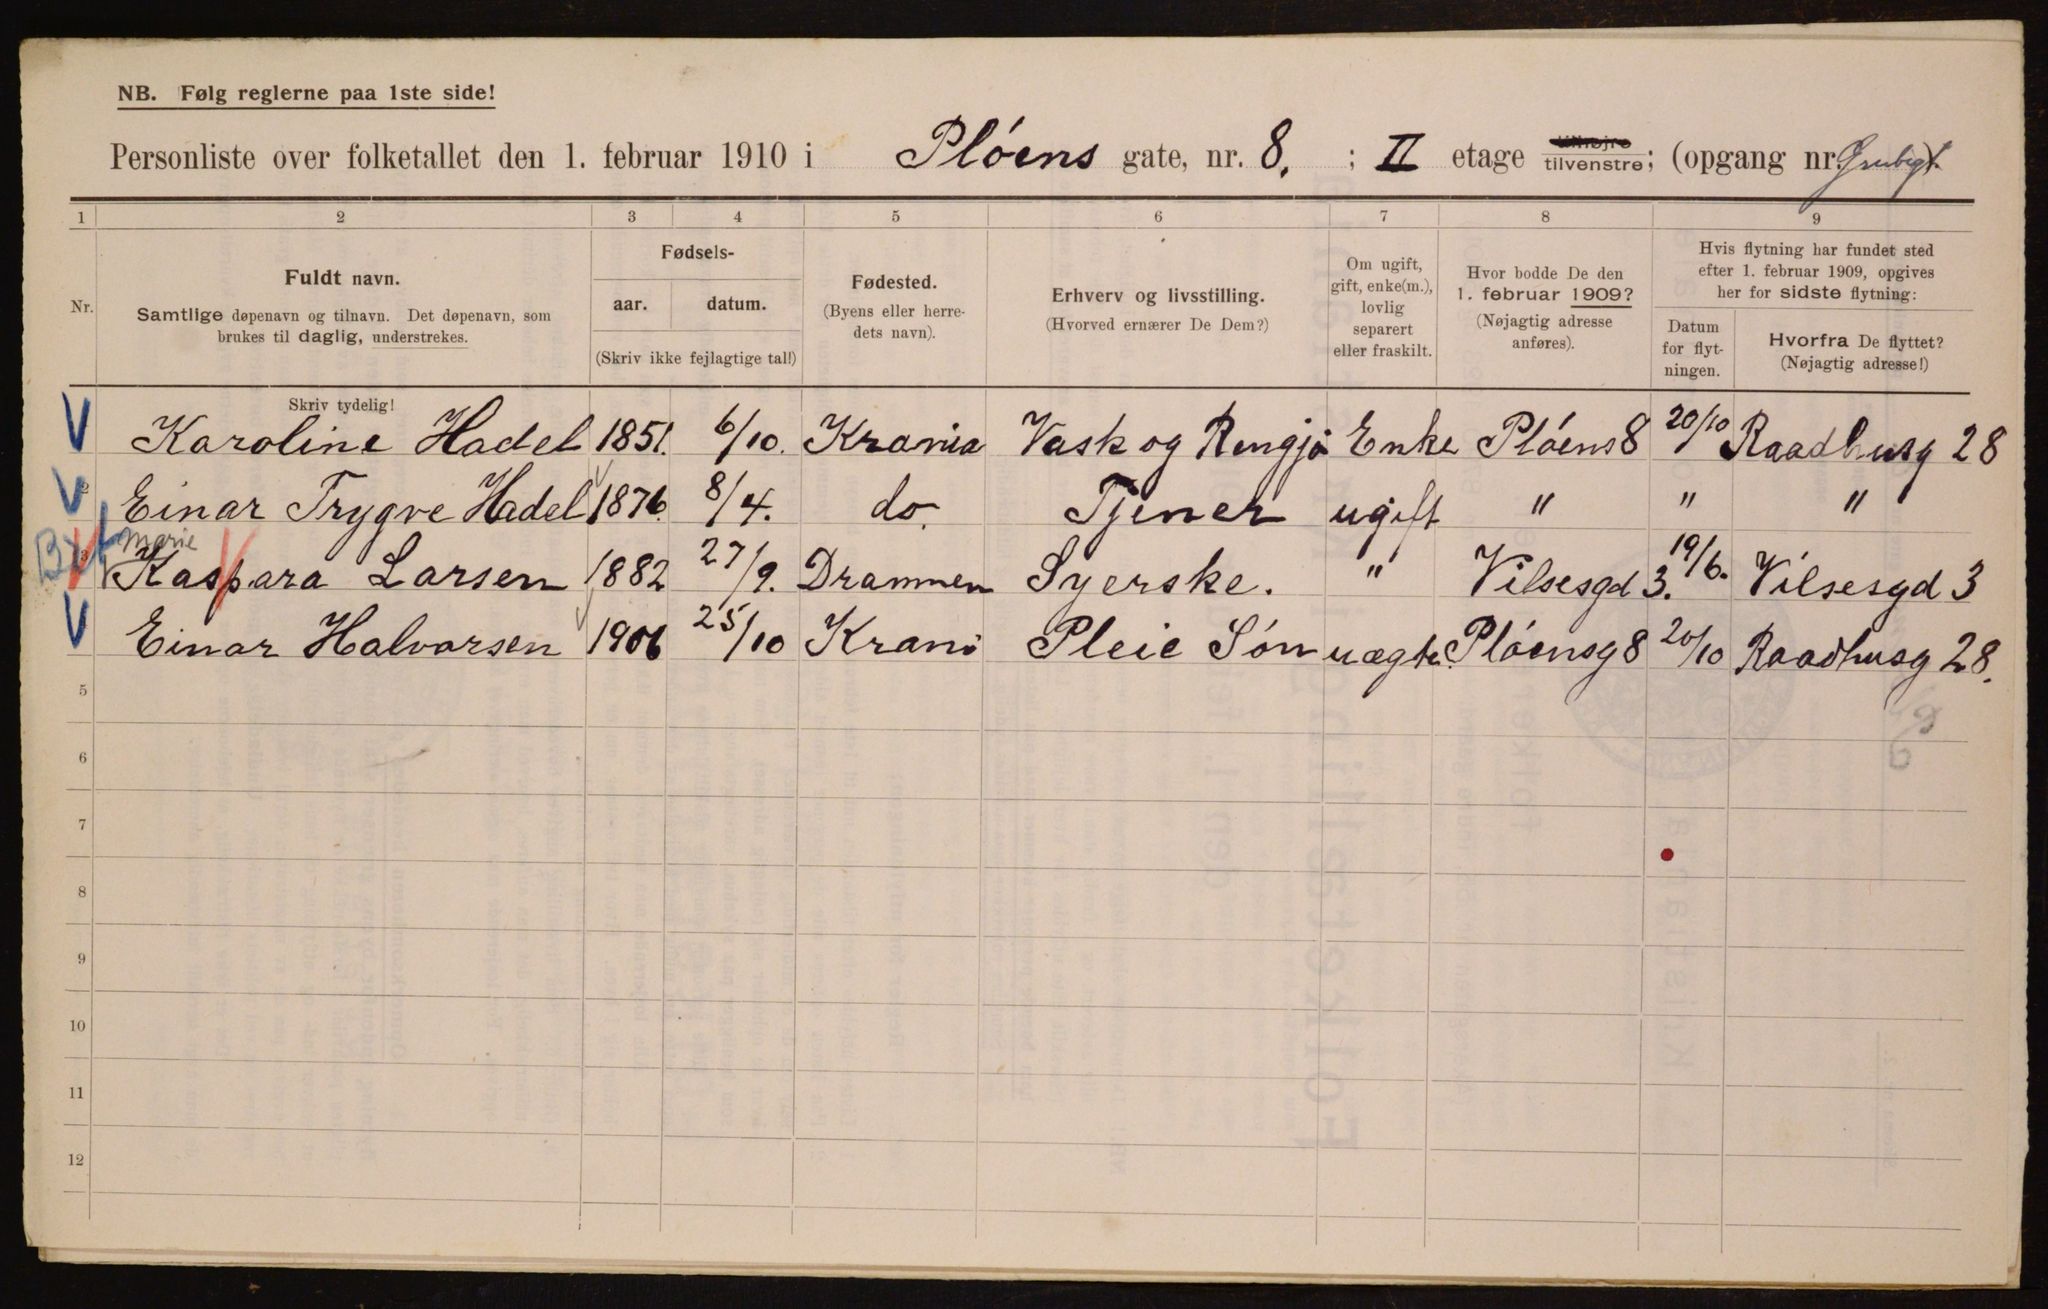 NB. Følg reglerne paa 1ste side!
Personliste over folketallet den 1. februar 1910 i Plóens gate, nr. 8. ; II etage tilhøjre tilvenstre; (opgang nr.
1 2 3 4 5 6 7 8 9
Nr.
Fuldt navn.
Samtlige døpenavn og tilnavn. Det døpenavn, som
brukes til daglig, understrekes.
Skriv tydelig!
Fødsels-
aar. datum.
(Skriv ikke fejlagtige tal!)
Fødested.
(Byens eller herre-
dets navn).
Erhverv og livsstilling.
(Hvorved ernærer De Dem?)
Om ugift,
gift, enke(m.),
lovlig
separert
eller fraskilt.
Hvor bodde De den
1. februar 1909?
(Nøjagtig adresse
anføres).
Hvis flytning har fundet sted
efter 1. februar 1909, opgives
her for sidste flytning:
Datum
for flyt-
ningen.
Hvorfra De flyttet?
(Nøjagtig adresse!)
V Karoline Hadel 1851. 6/10. Krania Vask og Rengjø Enke Plóens 8 20/10 Raadhusg 28
V 2 Einar Trygve Hadel 1876. 8/4. do. Tjener ugift " " "
marie
3 Kaspara Larsen 1882 27/9. Drammen Syerske. " Vilsesgd 3. 19/6. Vilsesgd 3
V Einar Halvorsen 1906 25/10 Krani Pleie Són uægte. Plóensg 8 20/10 Raadhusg 28.
5
6
7
8
9
10
11
12